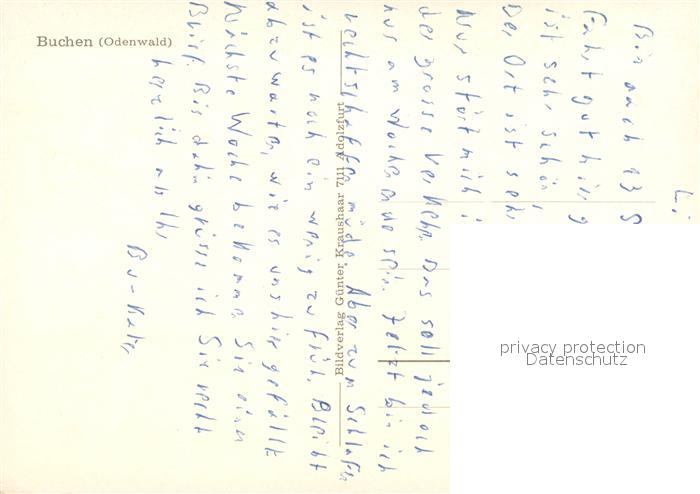 Buchen (Odenwald)
Bildverlag Günter Kraushaar 7111 Adolzfurt
Li
Bin nach 23 S
Fahrt gut hier g
ist sehr schön,
Der Ort ist sehr
Nur stört mich
der grosse Verkehr. Das soll jedoch
nur am Wochenende sein. Jetzt bin ich
rechtschaffen müde. Aber zum Schlafen
ist es noch ein wenig zu früh. Bleibt
abzuwarten, wie es uns hier gefällt
Nächste Woche bekommen Sie einen
Brief. Bis dahin grüsse ich Sie recht
herzlich als Ihr
privacy protection
Datenschutz